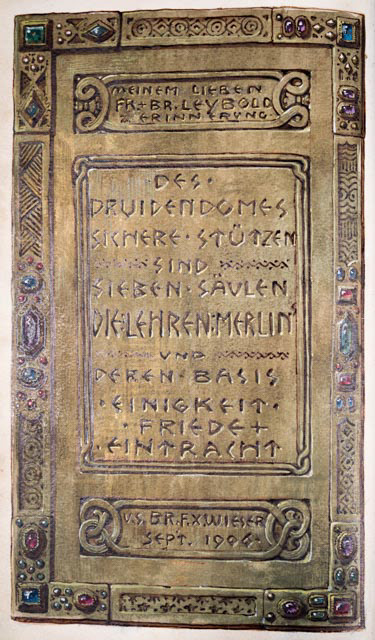 MEINEM LIEBEN
FR+BR. LEYBOLD
Z ERINNERUNG
DES·
DRUIDENDOMES
SICHERE·STÜTZEN
SIND
SIEBEN·SÄULEN
DIE·LEHREN·MERLINS
UND
DEREN·BASIS
·EINIGKEIT·
·FRIEDE+
·EINTRACHT
V.S. BR. F. X. WIESER
SEPT. 1906·